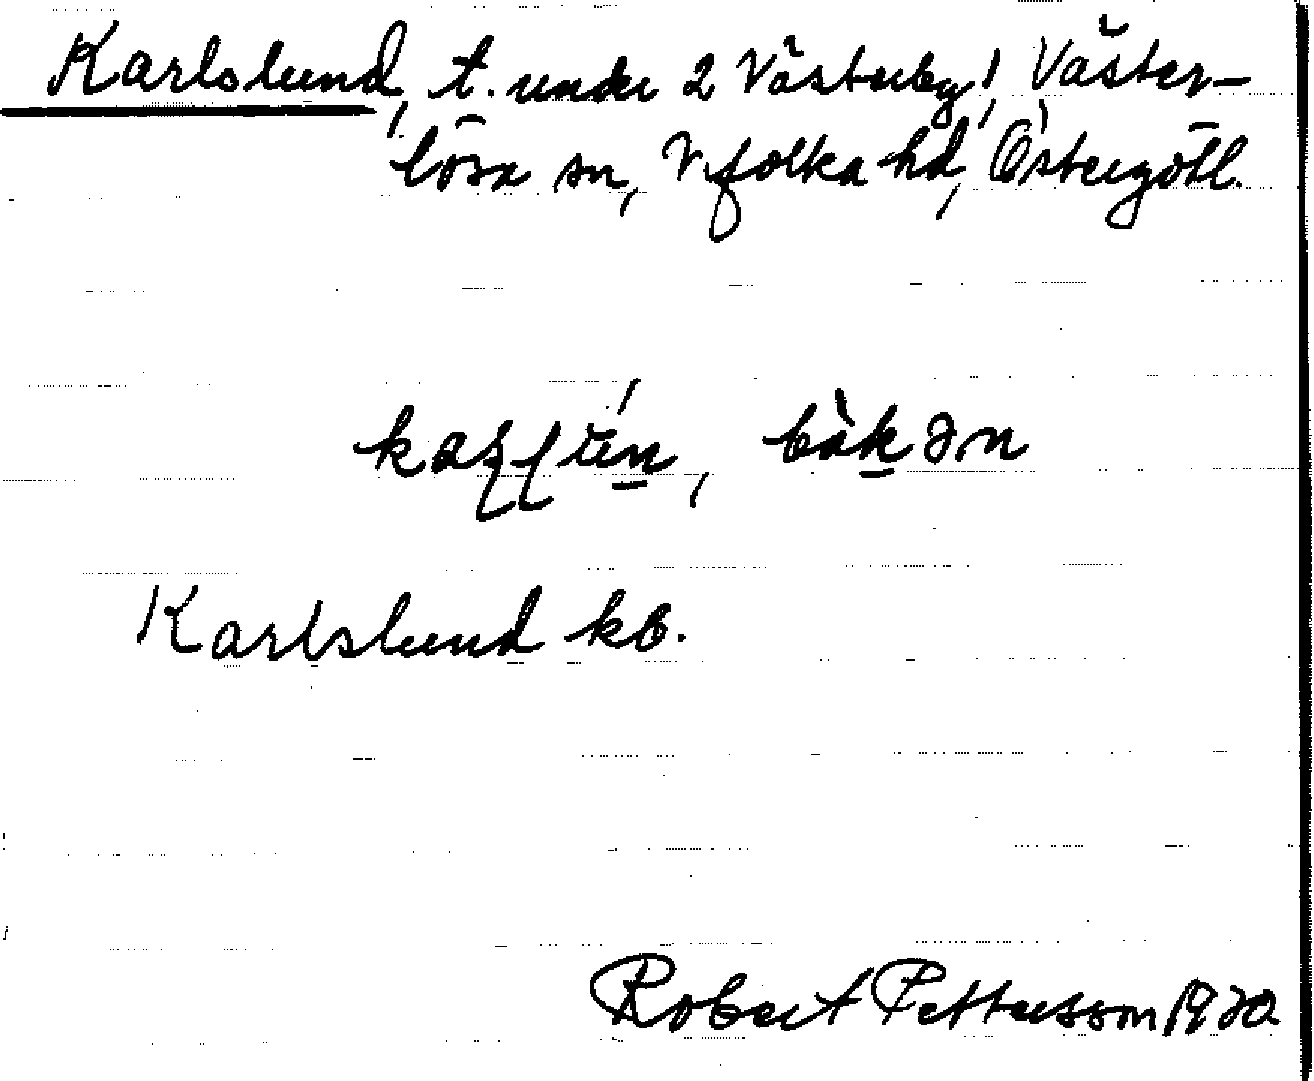 Karlslund, t. under 2 Västerby, Väster-
lösa sn, Vifolka hd, Östergötl.
Karlslund kb.
Robert Pettersson 1920.